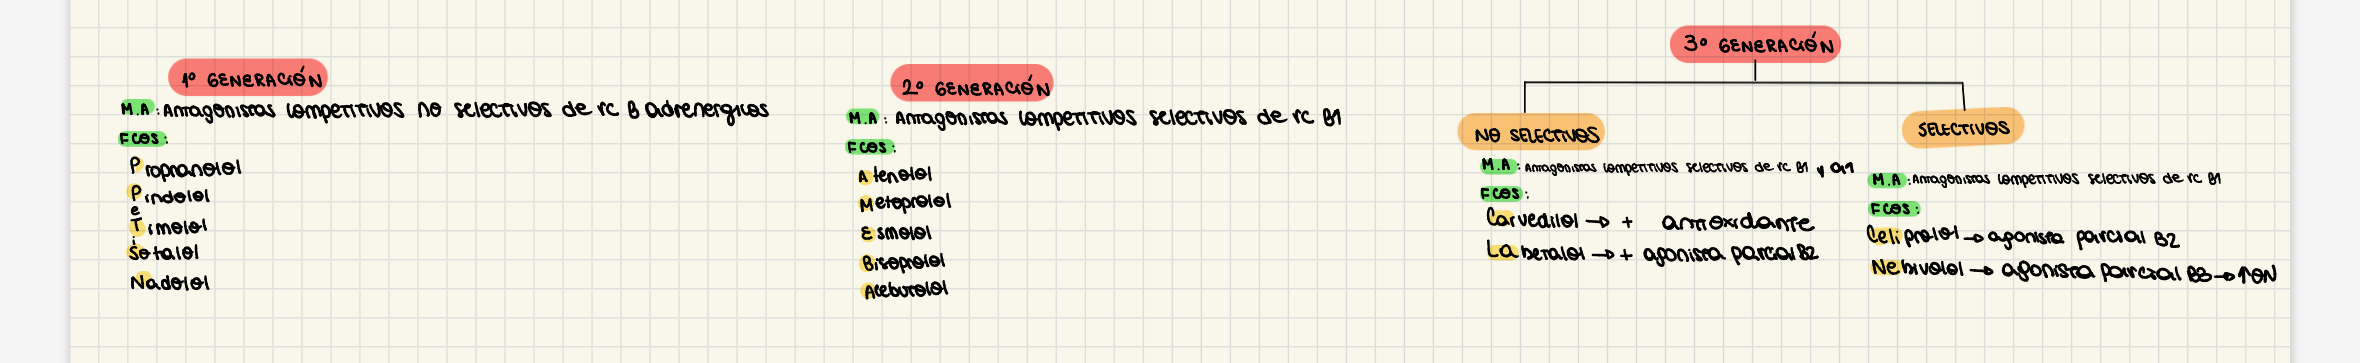 1º GENERACIÓN
M.A: Antagonistas competitivos no selectivos de rc B adrenergicos
FCOS:
Propranolol
Pindolol
e
Timolol
i
Sotalol
Nadolol
2º GENERACIÓN
M.A: Antagonistas competitivos selectivos de rc B1
FCOS:
Atenolol
Metoprolol
Esmolol
Bisoprolol
Acebutolol
3º GENERACIÓN
NO SELECTIVOS
M.A: Antagonistas competitivos selectivos de rc B1 y α1
FCOS:
Carvedilol → + antioxidante
Labetalol → + agonista parcial B2
SELECTIVOS
M.A: Antagonistas competitivos selectivos de rc B1
FCOS:
Celiprolol → agonista parcial B2
Nebivolol → agonista parcial B3 → ↑ON